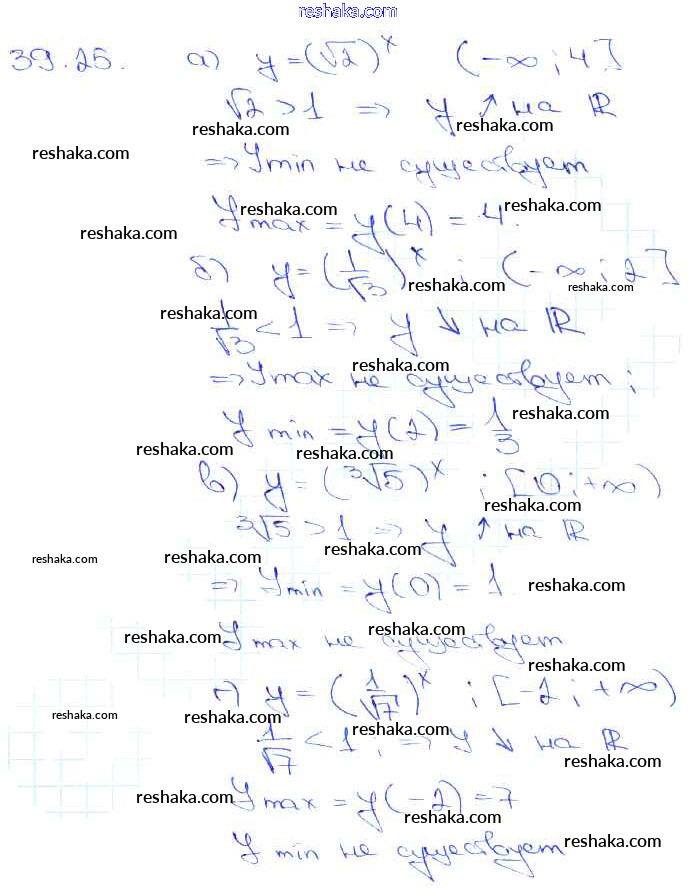 reshaka.com
39.25. а) y = (√2)^x (-∞; 4]
√2 > 1 ⇒ y ↑ на ℝ
reshaka.com reshaka.com
reshaka.com
⇒ y min не существует
reshaka.com
y max = y(4) = 4.
reshaka.com
reshaka.com
б) y = (1/√3)^x ; (-∞; 2]
reshaka.com reshaka.com
reshaka.com
1/√3 < 1 ⇒ y ↓ на ℝ
reshaka.com
⇒ y max не существует;
reshaka.com
y min = y(2) = 1/3
reshaka.com reshaka.com
в) y = (³√5)^x ; [0; +∞)
reshaka.com
³√5 > 1 ⇒ y ↑ на ℝ
reshaka.com reshaka.com reshaka.com
⇒ y min = y(0) = 1
reshaka.com
y max не существует
reshaka.com reshaka.com
г) y = (1/√7)^x ; [-2; +∞)
reshaka.com
reshaka.com reshaka.com
1/√7 < 1, ⇒ y ↓ на ℝ
reshaka.com
y max = y(-2) = 7
reshaka.com reshaka.com
y min не существует
reshaka.com